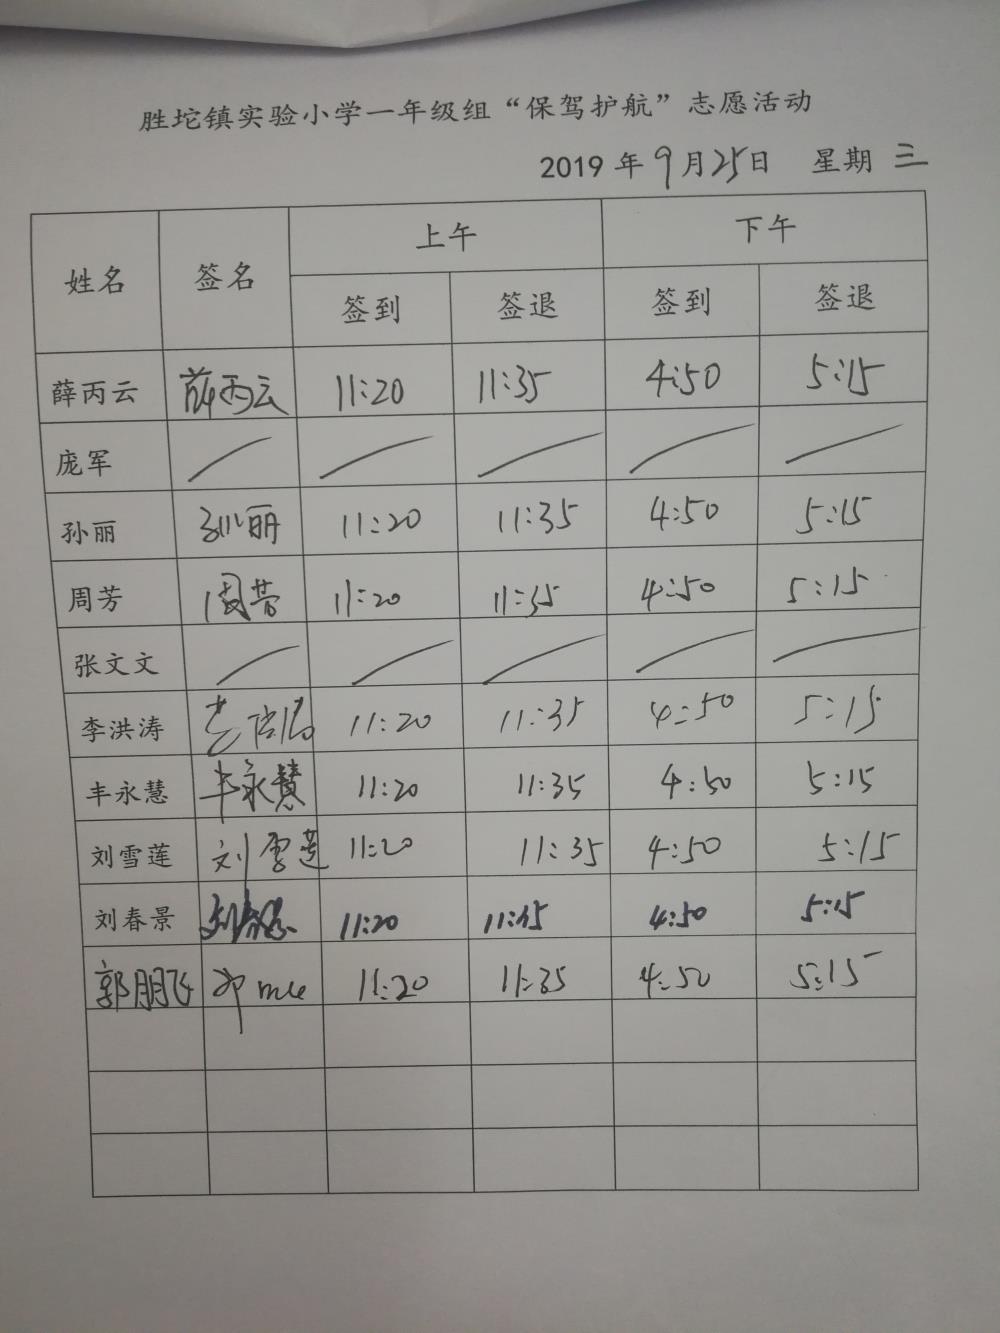 胜坨镇实验小学一年级组“保驾护航”志愿活动
2019年9月25日 星期三
姓名 签名 上午 下午
签到 签退 签到 签退
薛丙云 薛丙云 11:20 11:35 4:50 5:15
庞军
孙丽 孙丽 11:20 11:35 4:50 5:15
周芳 周芳 11:20 11:35 4:50 5:15
张文文
李洪涛 11:20 11:35 4:50 5:15
丰永慧 丰永慧 11:20 11:35 4:50 5:15
刘雪莲 刘雪莲 11:20 11:35 4:50 5:15
刘春景 刘春景 11:20 11:35 4:50 5:15
郭朋飞 11:20 11:35 4:50 5:15